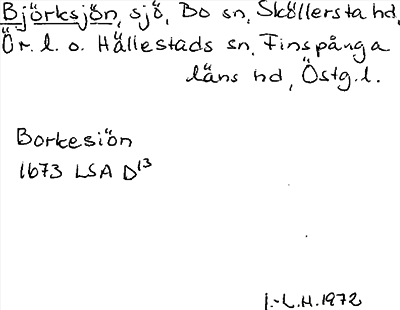 Björksjön, sjö, Bo sn, Sköllersta hd,
Ör. l. o. Hällestads sn, Finspånga
läns hd, Östg. l.
Borkesiön
1673 LSA D13
I.-L.H. 1972